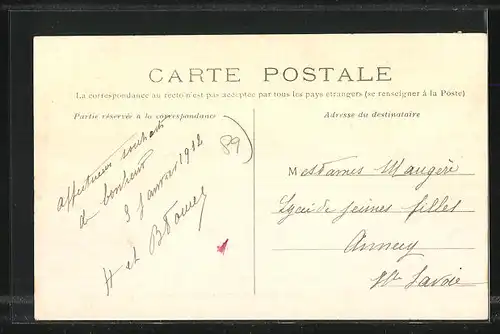 CARTE POSTALE
La correspondance au recto n'est pas acceptée par tous les pays étrangers (se renseigner à la Poste)
Partie réservée à la correspondance
Adresse du destinataire
affectueux souhaits
de bonheur
3 Janvier 1912
H et B
89
Mesdames Maugéri
Lycée de jeunes filles
Annecy
Hte Savoie